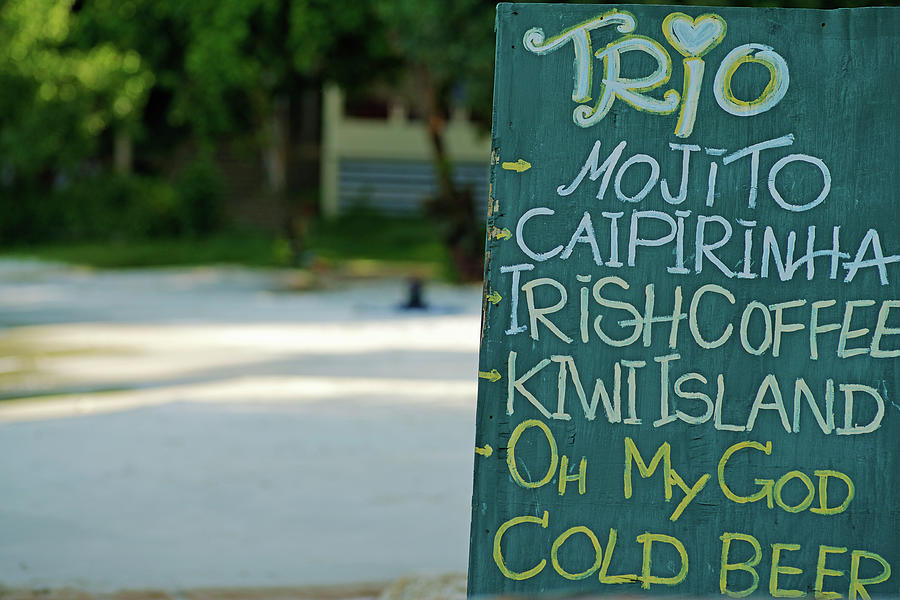 TRiO
MOJiTO
CAIPIRINHA
IRiSHCOFFEE
KIWI ISLAND
OH MY GOD
COLD BEER